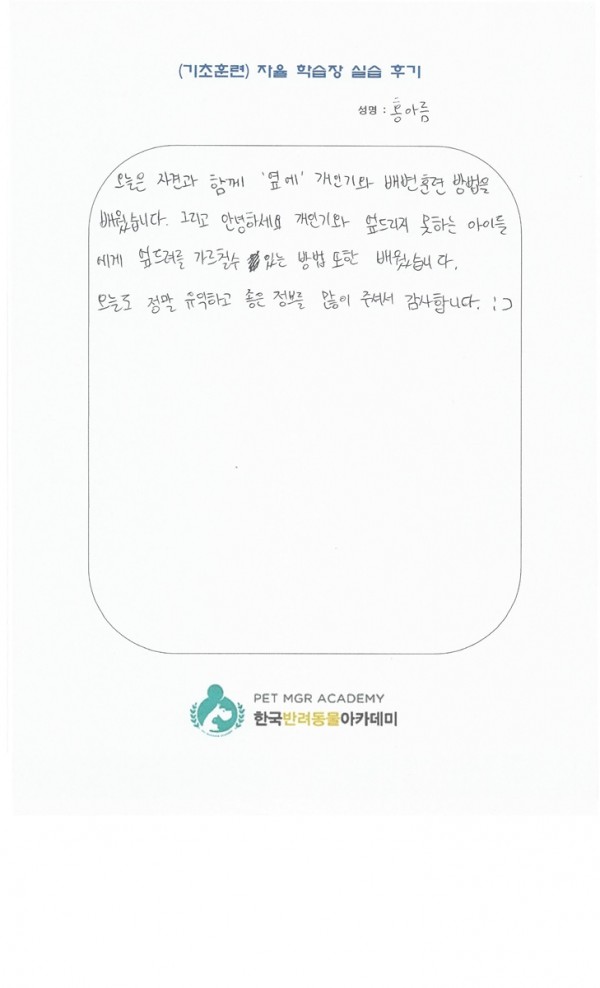 (기초훈련) 자율 학습장 실습 후기
성명 : 홍아름
오늘은 자견과 함께 '옆에' 개인기와 배변훈련 방법을
배웠습니다. 그리고 안녕하세요 개인기와 엎드리지 못하는 아이들
에게 엎드려를 가르칠수 있는 방법 또한 배웠습니다.
오늘도 정말 유익하고 좋은 정보를 많이 주셔서 감사합니다. :⊃
PET MGR ACADEMY
한국반려동물아카데미